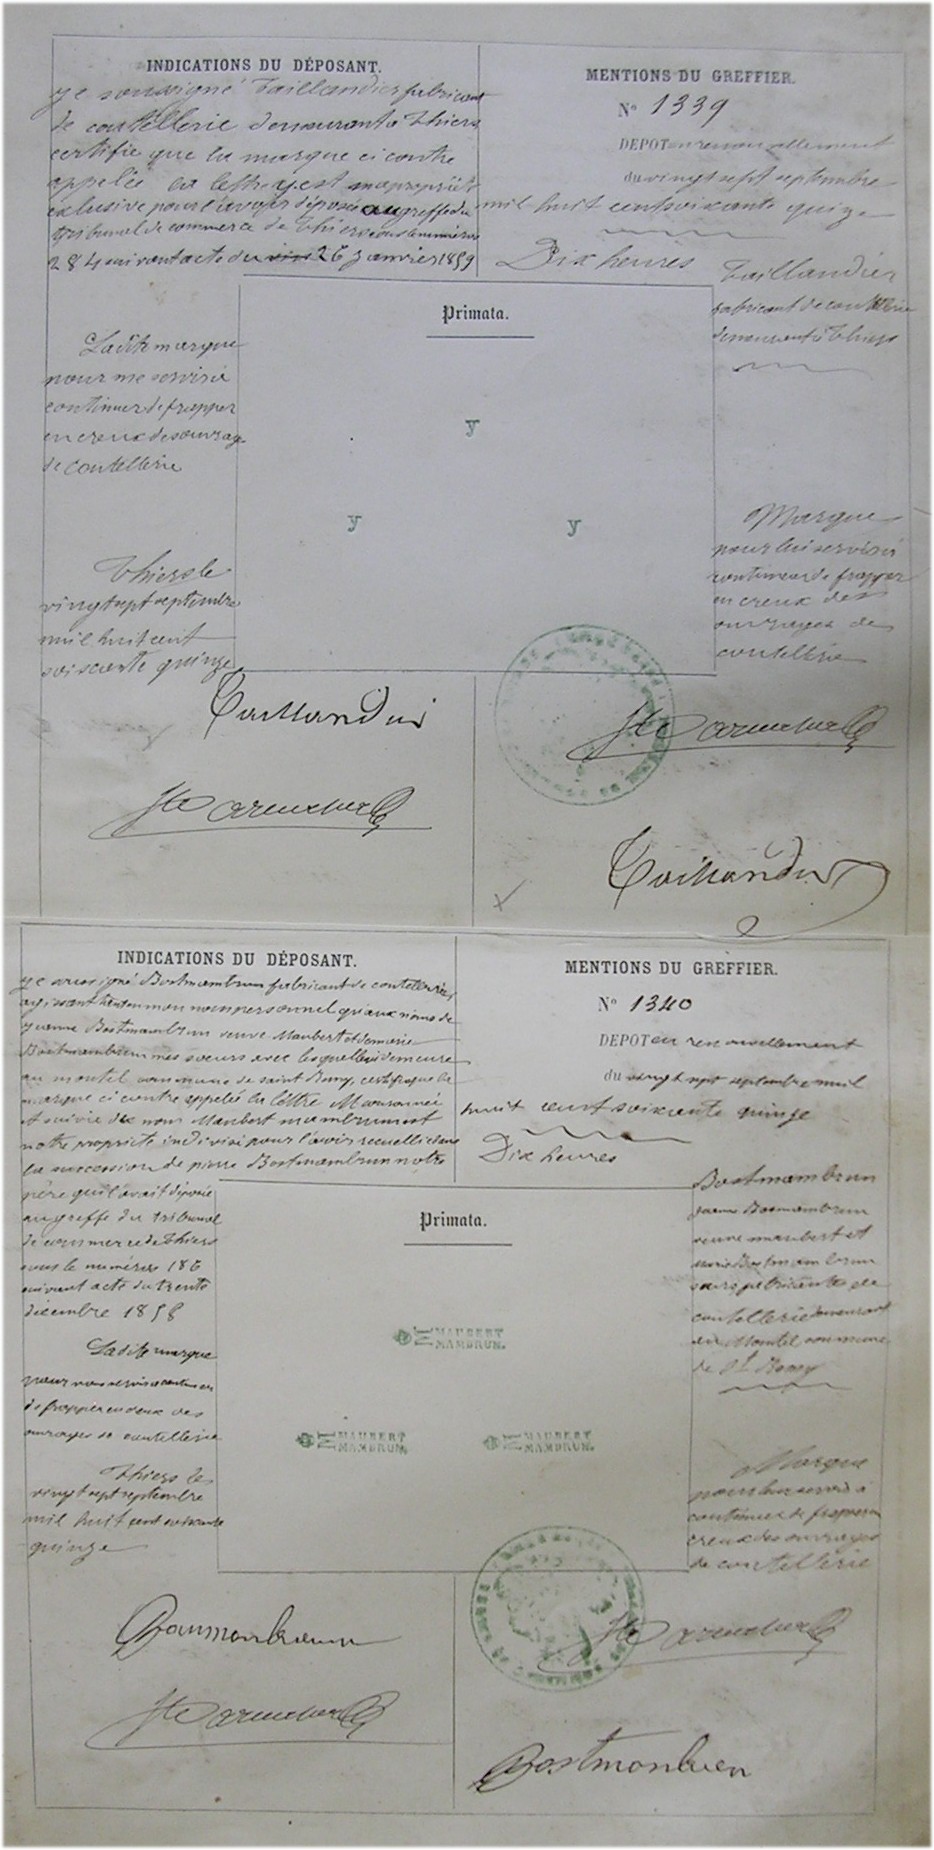 INDICATIONS DU DÉPOSANT.
je soussigné Taillandier fabricant
de coutellerie demeurant à Thiers
certifie que la marque ci contre
appelée la lettre y est ma propriété
exclusive pour l'avoir déposée au greffe du
tribunal de commerce de Thiers sous le numéro
284 suivant acte du 26 janvier 1859
Ladite marque
pour me servir à
continuer de frapper
en creux des ouvrage
de coutellerie
Thiers le
vingt sept septembre
mil huit cent
soixante quinze
MENTIONS DU GREFFIER.
N° 1339
DEPOT en renouvellement
du vingt sept septembre
mil huit cent soixante quinze
Dix heures
Taillandier
fabricant de coutellerie
demeurant à Thiers
Marque
pour lui servir à
continuer de frapper
en creux des
ouvrages de
coutellerie
Primata.
y
y y
Taillandier
Taillandier
INDICATIONS DU DÉPOSANT.
je soussigné Bostmambrun fabricant de coutellerie,
agissant tant en mon nom personnel qu'aux noms de
Bostmambrun veuve Maubert et de marie
Bostmambrun mes sœurs avec lesquelles demeure
au montel commune de saint Remy, certifie que la
marque ci contre appelée la lettre M couronnée
et suivie des nom Maubert mambrun est
notre propriété indivisé pour l'avoir recueillie dans
la succession de pierre Bostmambrun notre
père qui l'avait déposée
au greffe du tribunal
de commerce de Thiers
sous le numéro 186
suivant acte du trente
décembre 1858
Ladite marque
pour nous servir à continuer
de frapper en creux des
ouvrages de coutellerie
Thiers le
vingt sept septembre
mil huit cent soixante
quinze
MENTIONS DU GREFFIER.
N° 1340
DEPOT en renouvellement
du vingt sept septembre mil
huit cent soixante quinze
Dix heures
Bostmambrun
Bosmambrun
veuve maubert et
Marie Bostmambrun
sœurs fabricantes de
coutellerie demeurant
au Montel commune
de St Remy
Marque
pour leur servir à
continuer de frapper en
creux des ouvrages
de coutellerie
Primata.
M MAUBERT
MAMBRUN.
M MAUBERT
MAMBRUN.
M MAUBERT
MAMBRUN.
Bostmambrun